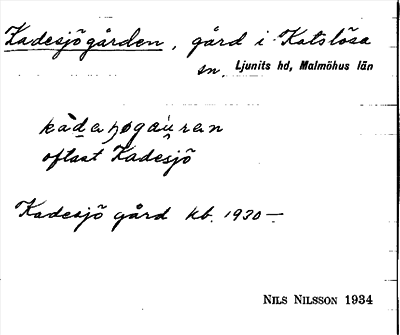 Kadesjögården, gård i Katslösa
sn. Ljunits hd, Malmöhus län
oftast Kadesjö
Kadesjö gård kb. 1930 –
NILS NILSSON 1934